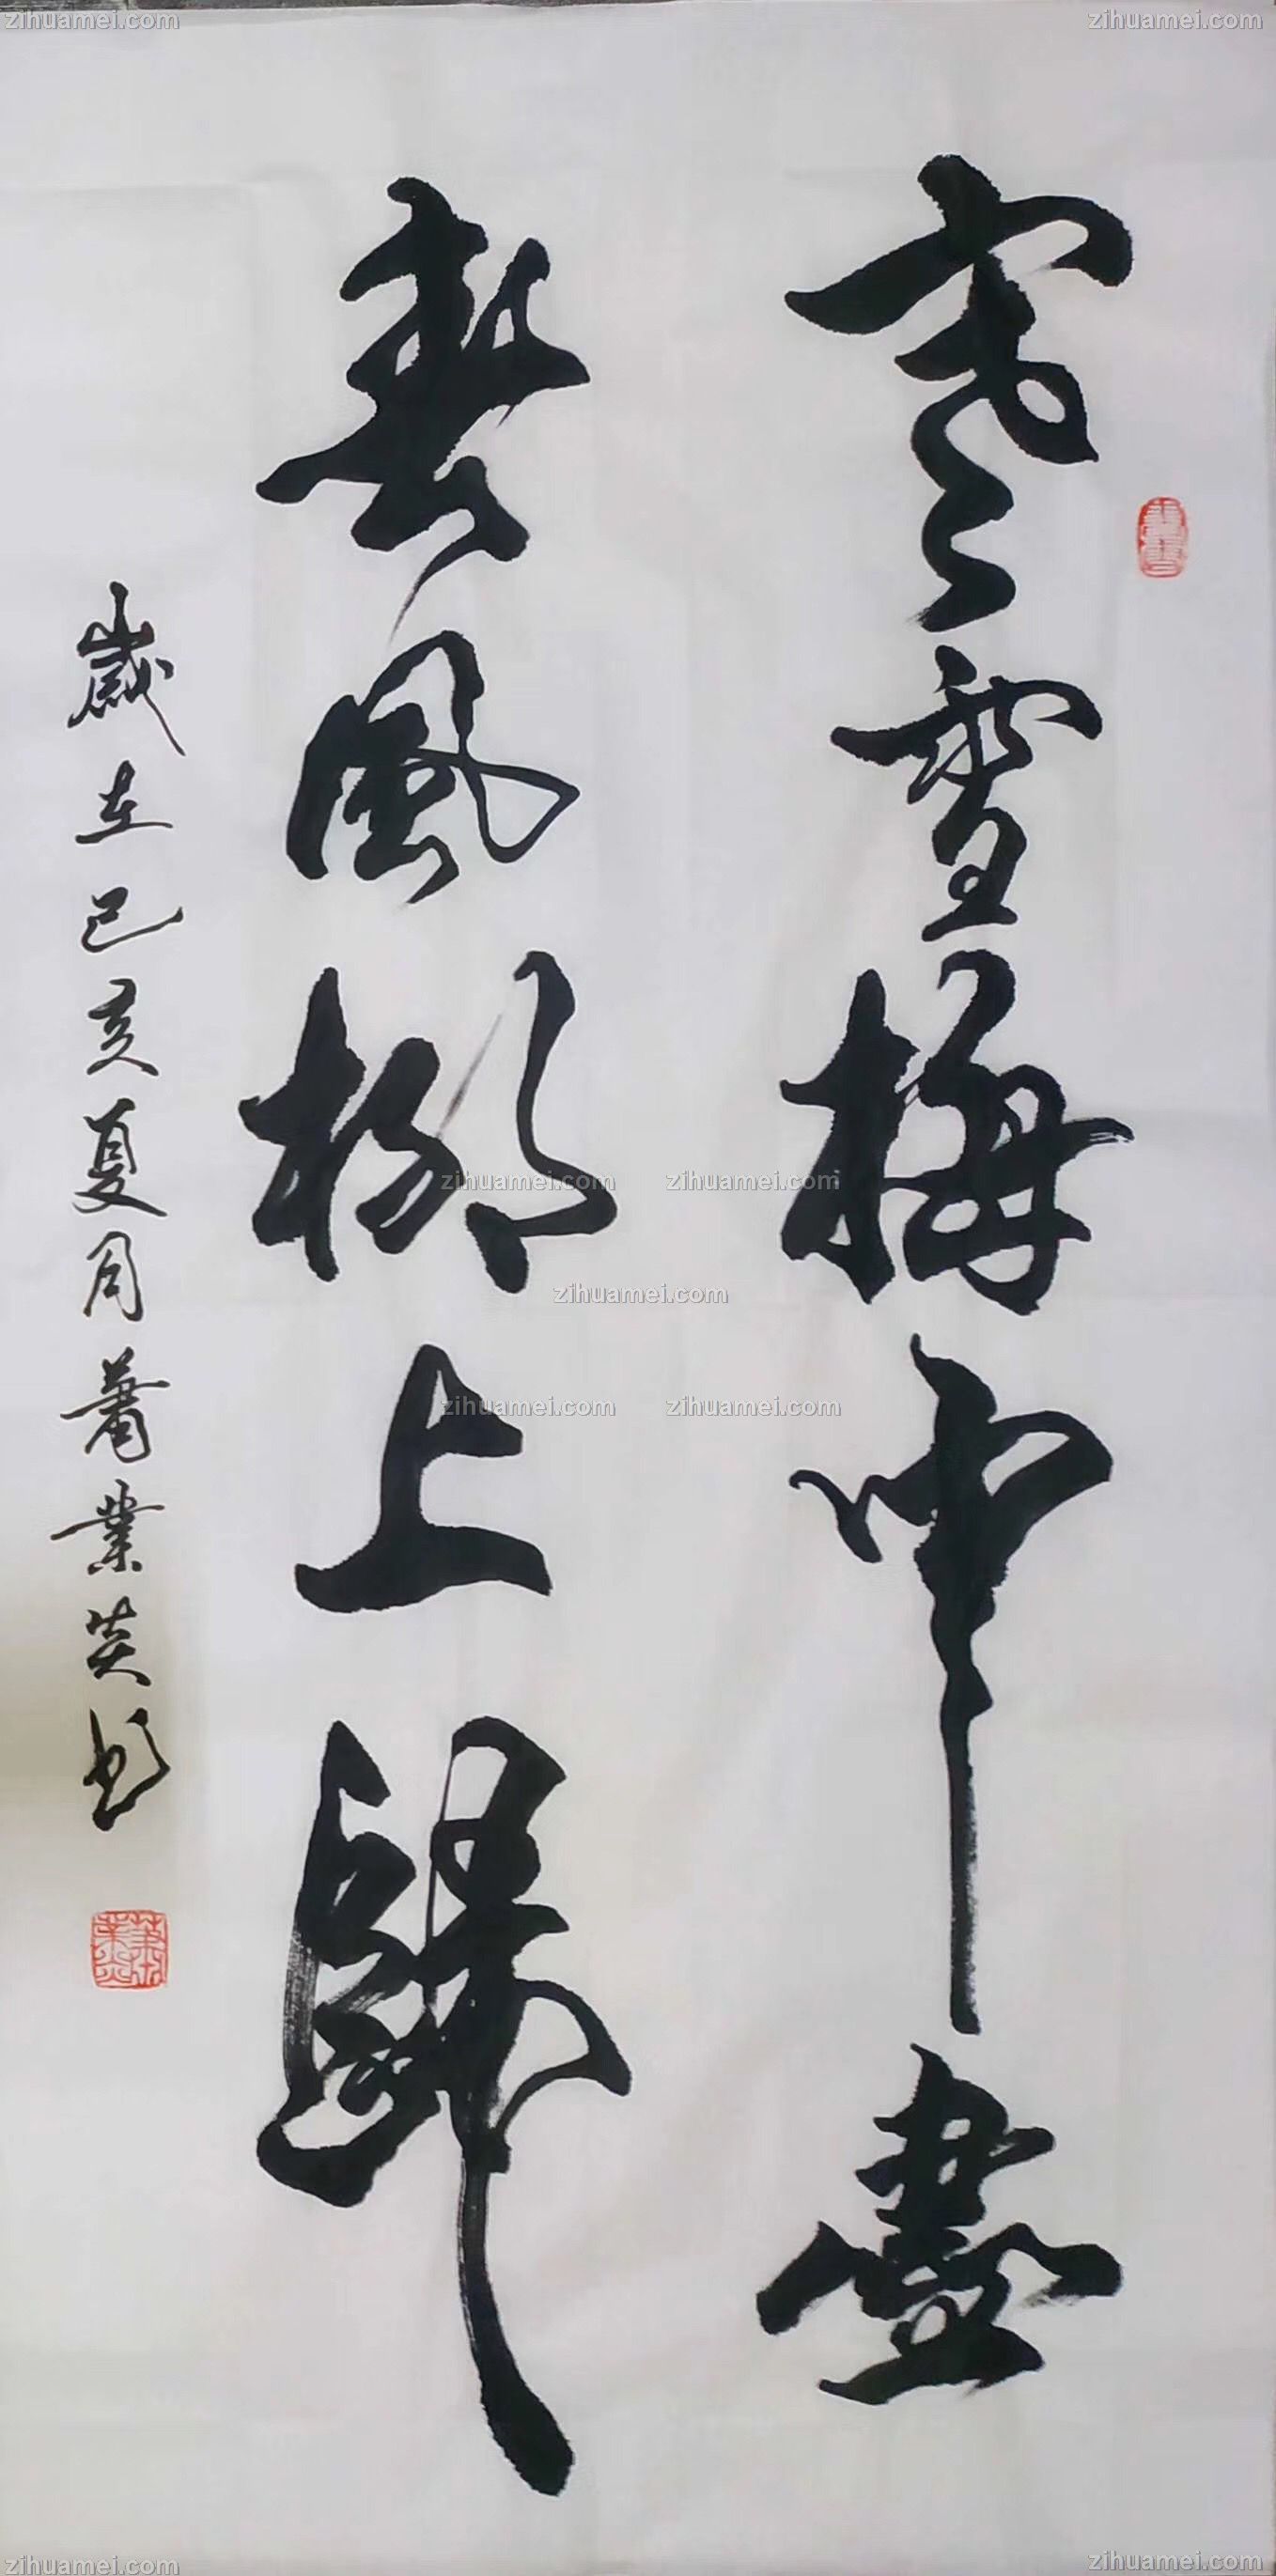 寒雪梅中盡
春風柳上歸
歲在己亥夏月蕭業英書
zihuamei.com
zihuamei.com
zihuamei.com
zihuamei.com
zihuamei.com
zihuamei.com
zihuamei.com
zihuamei.com
zihuamei.com